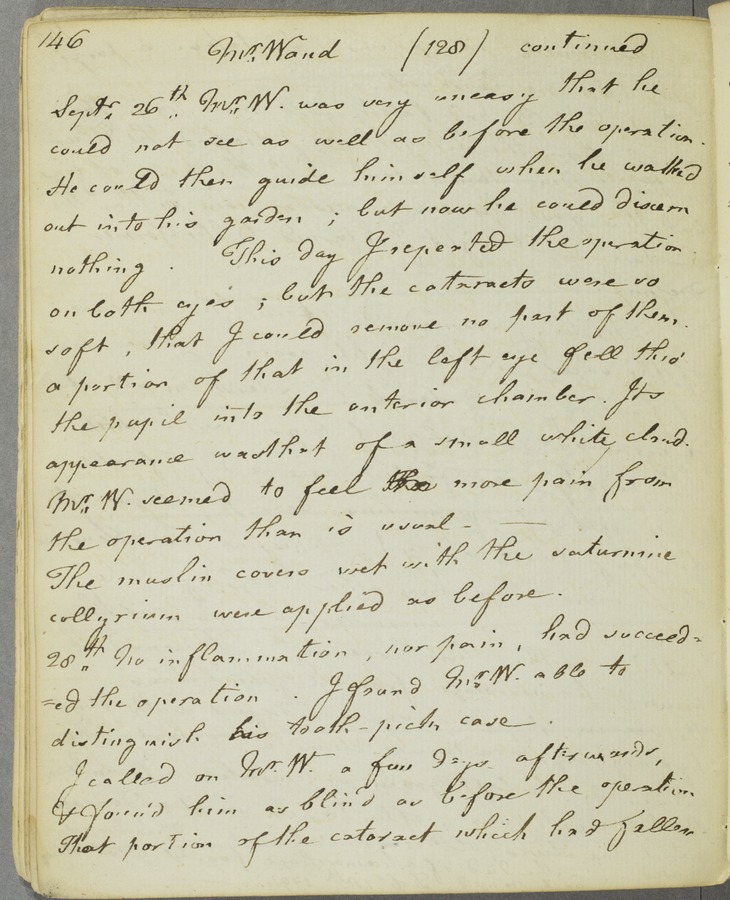 146
Mr. Wand (128) continued
Septr. 26th. Mr. W. was very uneasy that he
could not see as well as before the operation.
He could then guide himself when he walked
out into his garden; but now he could discern
nothing. This day I repeated the operation
on both eyes; but the cataracts were so
soft, that I could remove no part of them.
a portion of that in the left eye fell thro'
the pupil into the anterior chamber. Its
appearance was that of a small white cloud.
Mr. W. seemed to feel more pain from
the operation than is usual - —
The muslin covers wet with the saturnine
collyrium were applied as before.
28th. No inflammation, nor pain, had succeed=
=ed the operation. I found Mr. W. able to
distinguish his tooth-pick case.
I called on Mr. W. a few days afterwards,
& found him as blind as before the operation
That portion of the cataract which had fallen